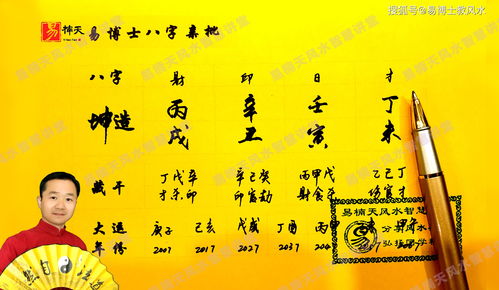 搜狐号@易博士教风水
楠天 易博士八字亲批
八字 财 印 日 才
坤造 丙 辛 壬 丁
戌 丑 寅 未
藏干 丁戊辛 辛己癸 丙甲戊 乙己丁
才杀印 印官劫 财食杀 伤官才
易楠天风水智慧
大运 庚子 己亥 戊戌 丁酉 丙申
年份 2007 2017 2027 2037
易楠天风水智慧讲堂